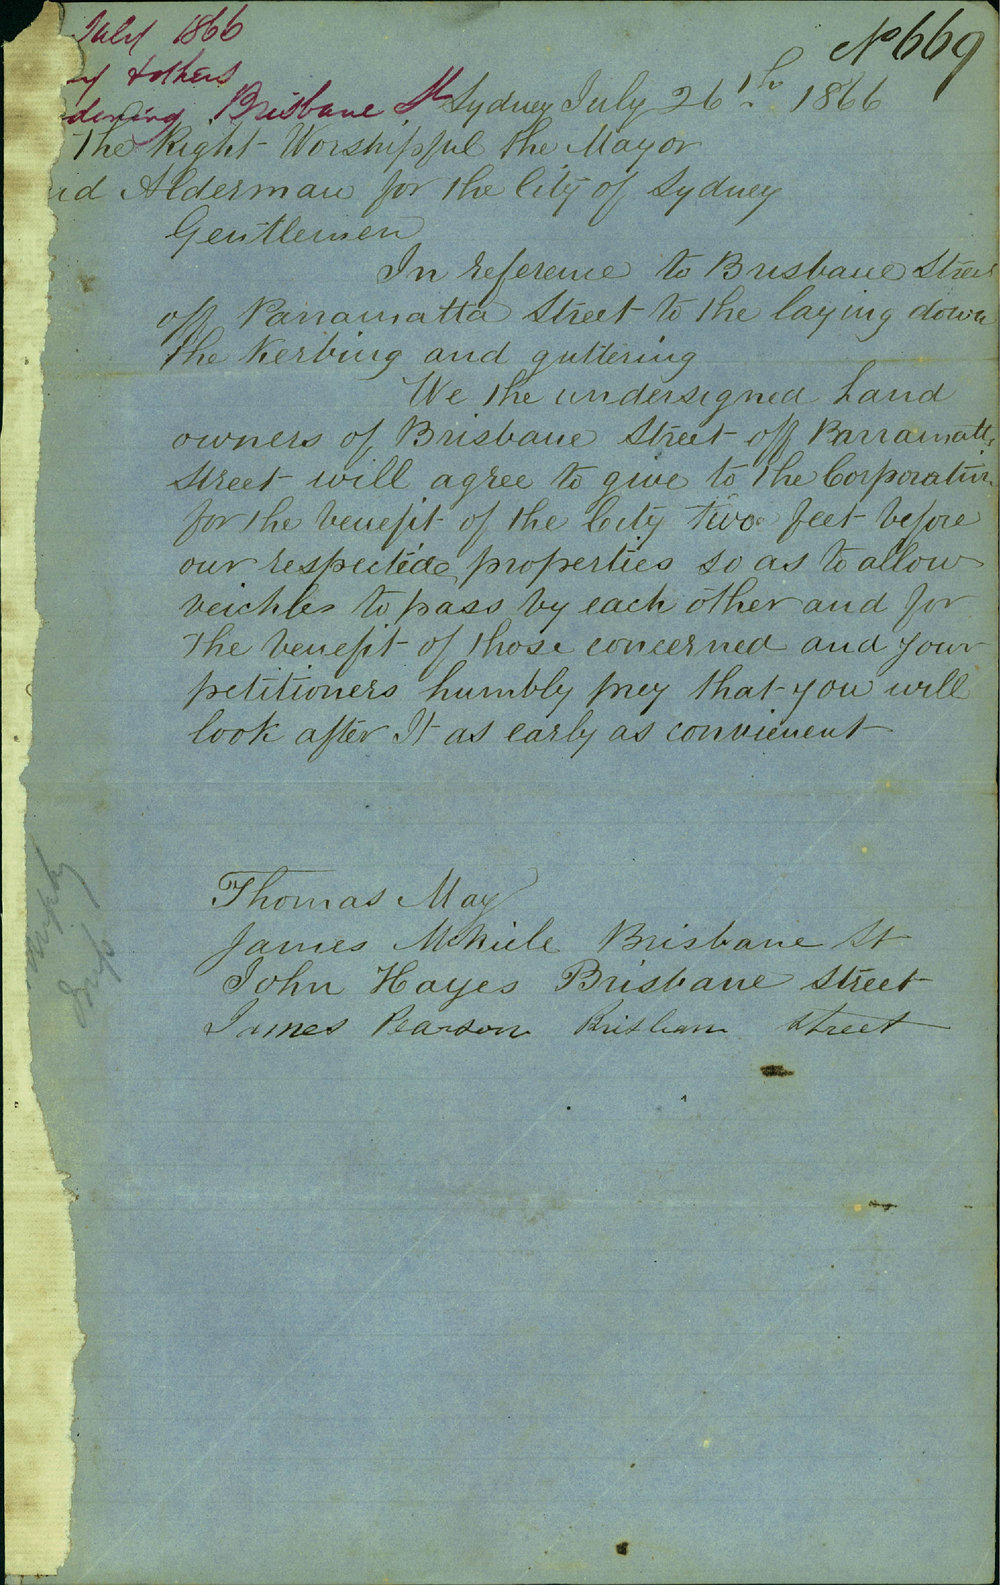 July 1866
No 669
& others
Brisbane St
Sydney July 26th 1866
The Right Worshipful the Mayor
Alderman for the City of Sydney
Gentlemen
In reference to Brisbane Street
off Parramatta Street to the laying down
the Kerbing and guttering
We the undersigned Land
owners of Brisbane Street off Parramatta
Street will agree to give to the Corporation
for the benefit of the City two feet before
our respective properties so as to allow
veichles to pass by each other and for
the benefit of those concerned and your
petitioners humbly prey that you will
look after It as early as convienent
Thomas May
James Brisbane St
John Hayes Brisbane Street
James Pearson Street
Murphy